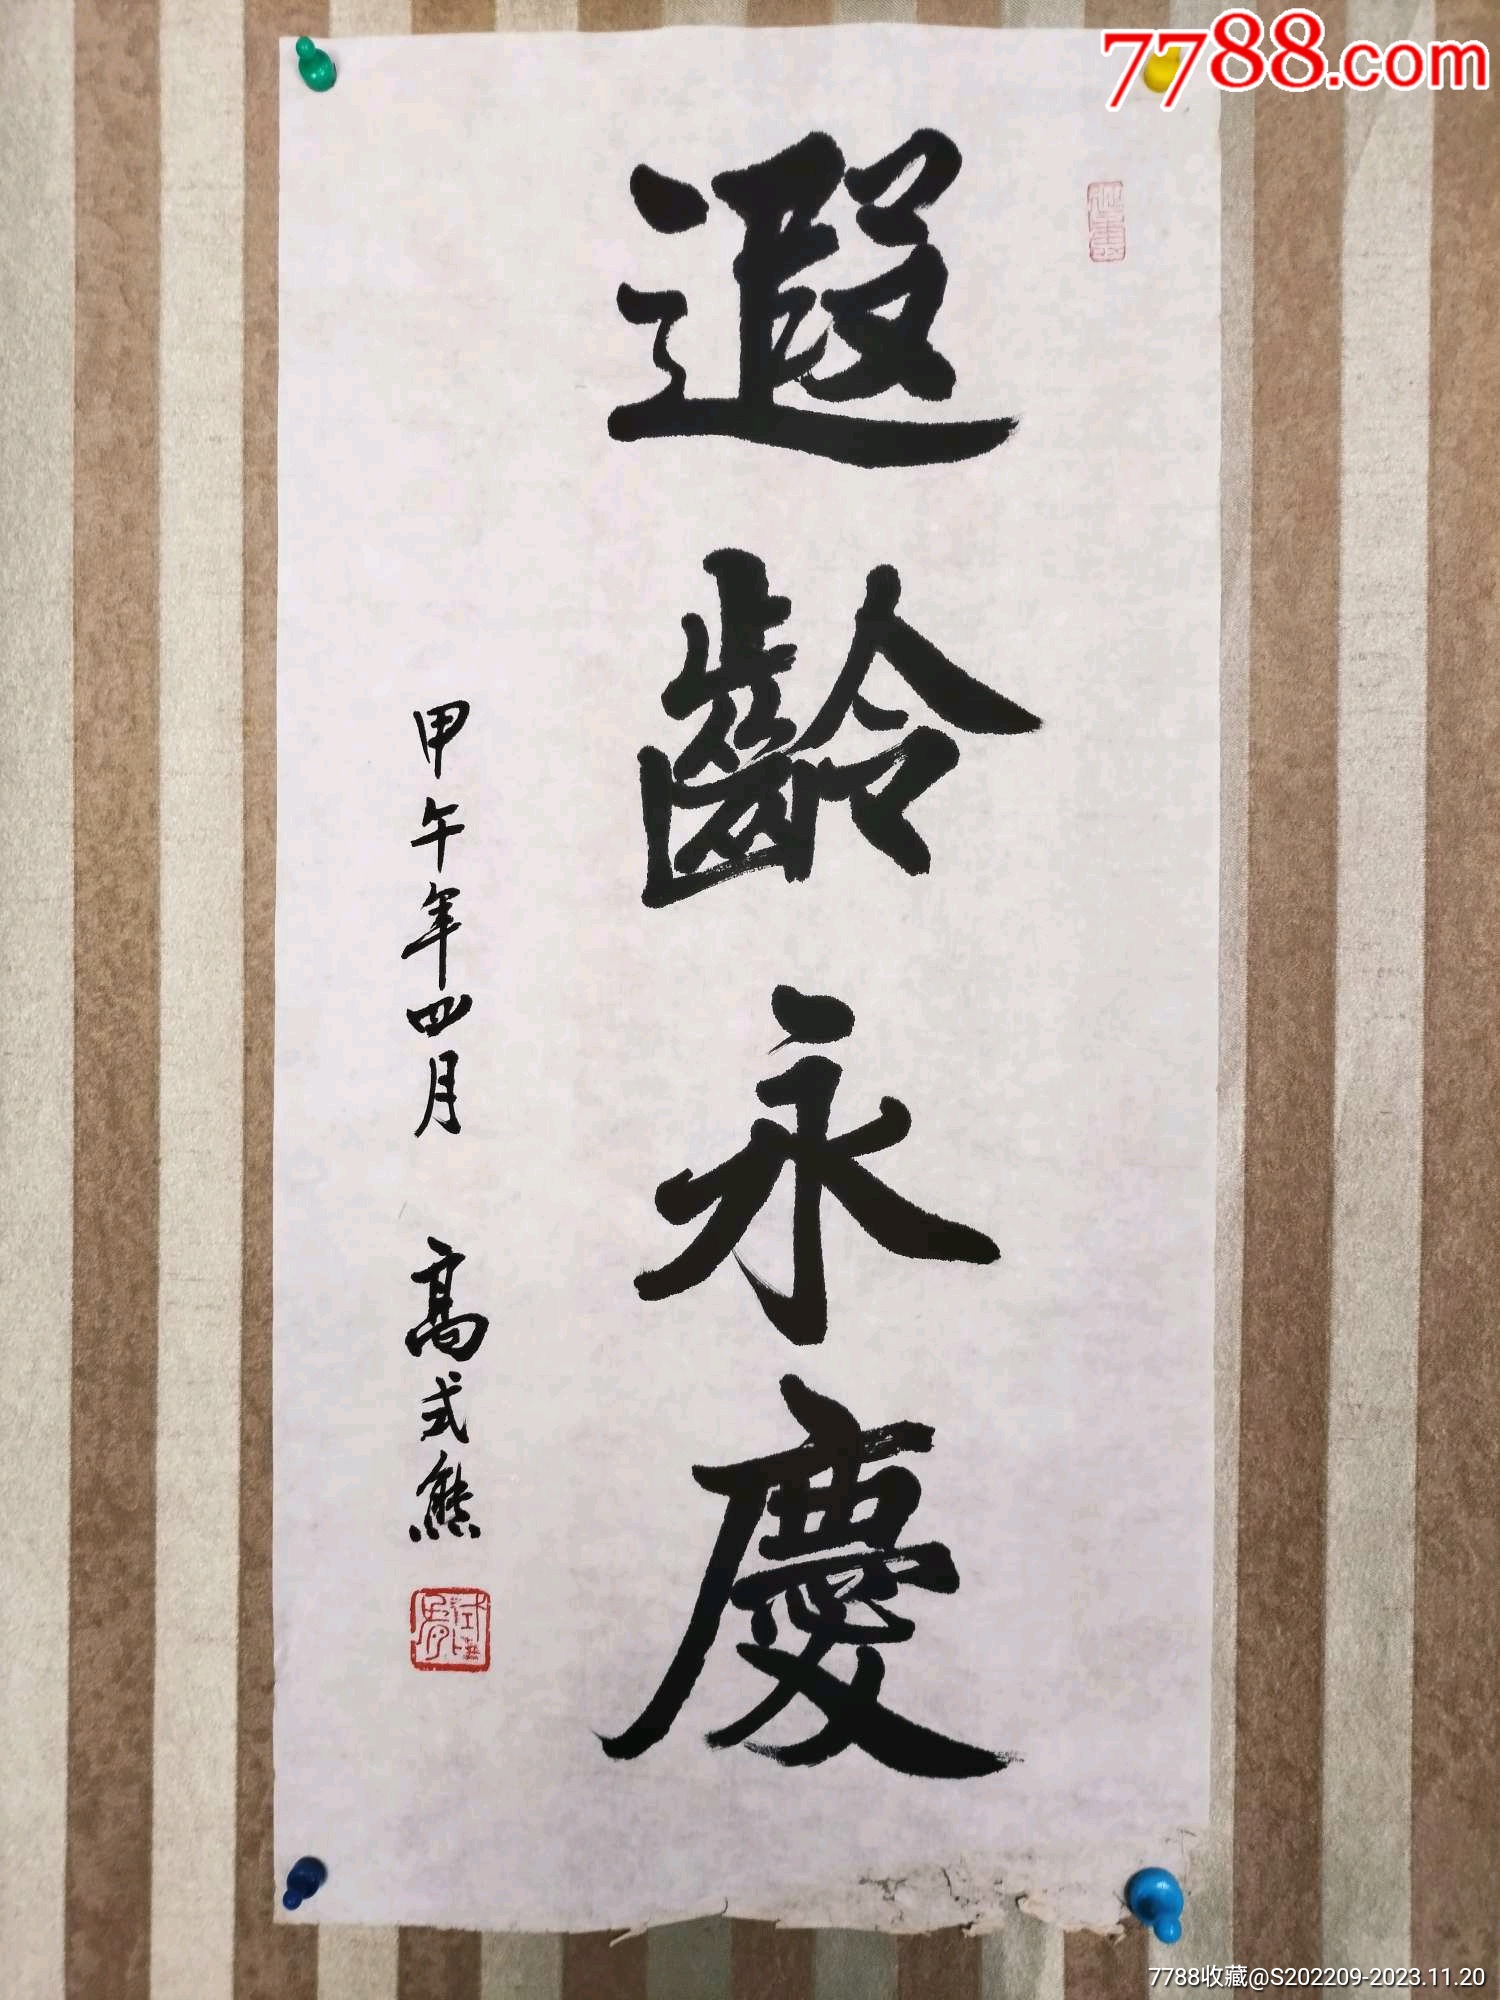 7788.com
遐齡永慶
甲午年四月 高式熊
7788收藏@S202209-2023.11.20